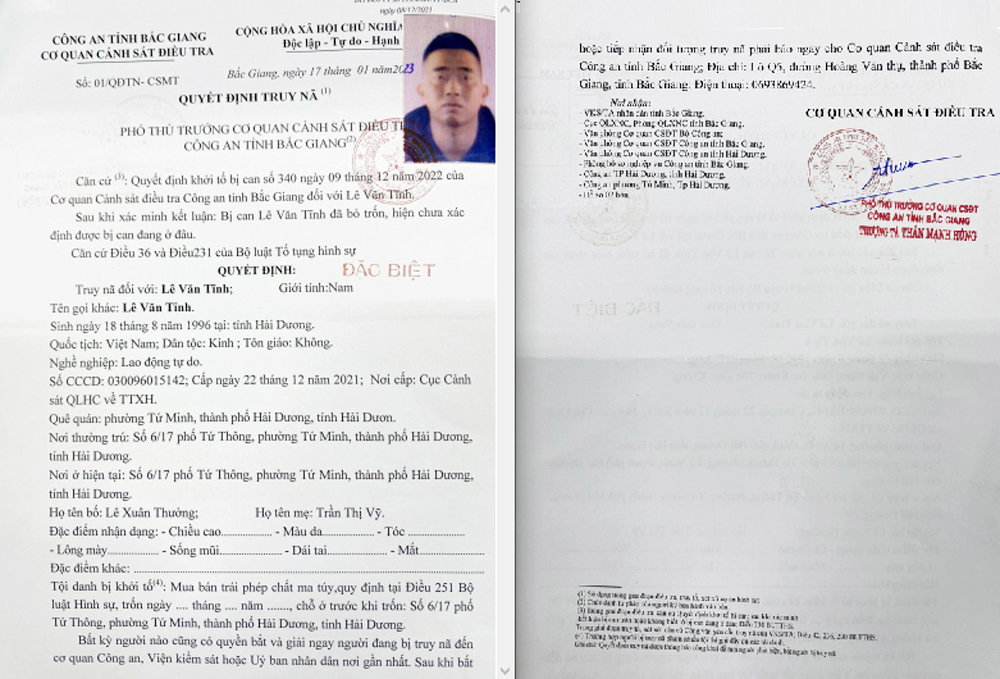 ngày 08/12/2021
CÔNG AN TỈNH BẮC GIANG
CƠ QUAN CẢNH SÁT ĐIỀU TRA
CỘNG HÒA XÃ HỘI CHỦ NGHĨA
Độc lập - Tự do - Hạnh
Số: 01/QĐTN- CSMT
Bắc Giang, ngày 17 tháng 01 năm 2023
QUYẾT ĐỊNH TRUY NÃ (1)
PHÓ THỦ TRƯỞNG CƠ QUAN CẢNH SÁT ĐIỀU
CÔNG AN TỈNH BẮC GIANG(2)
Căn cứ (3): Quyết định khởi tố bị can số 340 ngày 09 tháng 12 năm 2022 của
Cơ quan Cảnh sát điều tra Công an tỉnh Bắc Giang đối với Lê Văn Tĩnh.
Sau khi xác minh kết luận: Bị can Lê Văn Tĩnh đã bỏ trốn, hiện chưa xác
định được bị can đang ở đâu.
Căn cứ Điều 36 và Điều231 của Bộ luật Tố tụng hình sự
QUYẾT ĐỊNH:
ĐẶC BIỆT
Truy nã đối với: Lê Văn Tĩnh; Giới tính:Nam
Tên gọi khác: Lê Văn Tĩnh.
Sinh ngày 18 tháng 8 năm 1996 tại: tỉnh Hải Dương.
Quốc tịch: Việt Nam; Dân tộc: Kinh ; Tôn giáo: Không.
Nghề nghiệp: Lao động tự do.
Số CCCD: 030096015142; Cấp ngày 22 tháng 12 năm 2021; Nơi cấp: Cục Cảnh
sát QLHC về TTXH.
Quê quán: phường Tứ Minh, thành phố Hải Dương, tỉnh Hải Dươn.
Nơi thường trú: Số 6/17 phố Tứ Thông, phường Tứ Minh, thành phố Hải Dương,
tỉnh Hải Dương.
Nơi ở hiện tại: Số 6/17 phố Tứ Thông, phường Tứ Minh, thành phố Hải Dương,
tỉnh Hải Dương.
Họ tên bố: Lê Xuân Thưởng; Họ tên mẹ: Trần Thị Vỹ.
Đặc điểm nhận dạng: - Chiều cao.................... - Màu da.................... - Tóc ....................
- Lông mày.................... - Sống mũi.................... - Dái tai.................... - Mắt....................
Đặc điểm khác: ........................................
Tội danh bị khởi tố(4): Mua bán trái phép chất ma túy,quy định tại Điều 251 Bộ
luật Hình sự, trốn ngày .... tháng .... năm ......., chỗ ở trước khi trốn: Số 6/17 phố
Tứ Thông, phường Tứ Minh, thành phố Hải Dương, tỉnh Hải Dương.
Bất kỳ người nào cũng có quyền bắt và giải ngay người đang bị truy nã đến
cơ quan Công an, Viện kiểm sát hoặc Uỷ ban nhân dân nơi gần nhất. Sau khi bắt
hoặc tiếp nhận đối tượng truy nã phải báo ngay cho Cơ quan Cảnh sát điều tra
Công an tỉnh Bắc Giang; Địa chỉ: Lô Q5, đường Hoàng Văn thụ, thành phố Bắc
Giang, tỉnh Bắc Giang. Điện thoại: 0693869434.
Nơi nhận:
- VKS/TA nhân dân tỉnh Bắc Giang.
- Cục QLXNC, Phòng QLXNC tỉnh Bắc Giang.
- Văn phòng Cơ quan CSĐT Bộ Công an;
- Văn phòng Cơ quan CSĐT Công an tỉnh Bắc Giang.
- Văn phòng Cơ quan CSĐT Công an tỉnh Hải Dương.
- Phòng hồ sơ nghiệp vụ Công an tỉnh Bắc Giang.
- Công an TP Hải Dương, tỉnh Hải Dương.
- Công an phường Tứ Minh, Tp Hải Dương.
- Hồ sơ 02 bản.
CƠ QUAN CẢNH SÁT ĐIỀU TRA
PHÓ THỦ TRƯỞNG CƠ QUAN CSĐT
CÔNG AN TỈNH BẮC GIANG
THƯỢNG TÁ THÂN MẠNH HÙNG
(1) Sử dụng trong giai đoạn điều tra, truy tố, xét xử vụ án hình sự;
(2) Chức danh tư pháp của người ký ban hành văn bản.